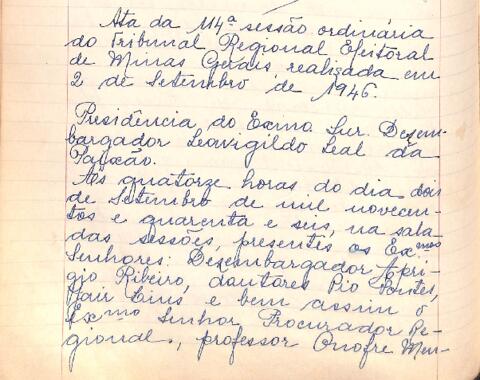 Ata da 114ª sessão ordinária
do Tribunal Regional Eleitoral
de Minas Gerais, realizada em
2 de Setembro de 1946.
Presidência do Exmo. Snr. Desem-
bargador Leovigildo Leal da
Paixão.
Às quatorze horas do dia dois
de Setembro de mil novecen-
tos e quarenta e seis, na sala
das sessões, presentes os Ex.mos
Senhores: Desembargador Apri-
gio Ribeiro, doutores Pio Pontes,
Jair Lins e bem assim o
Ex.mo Senhor Procurador Re-
gional, professor Onofre Men-